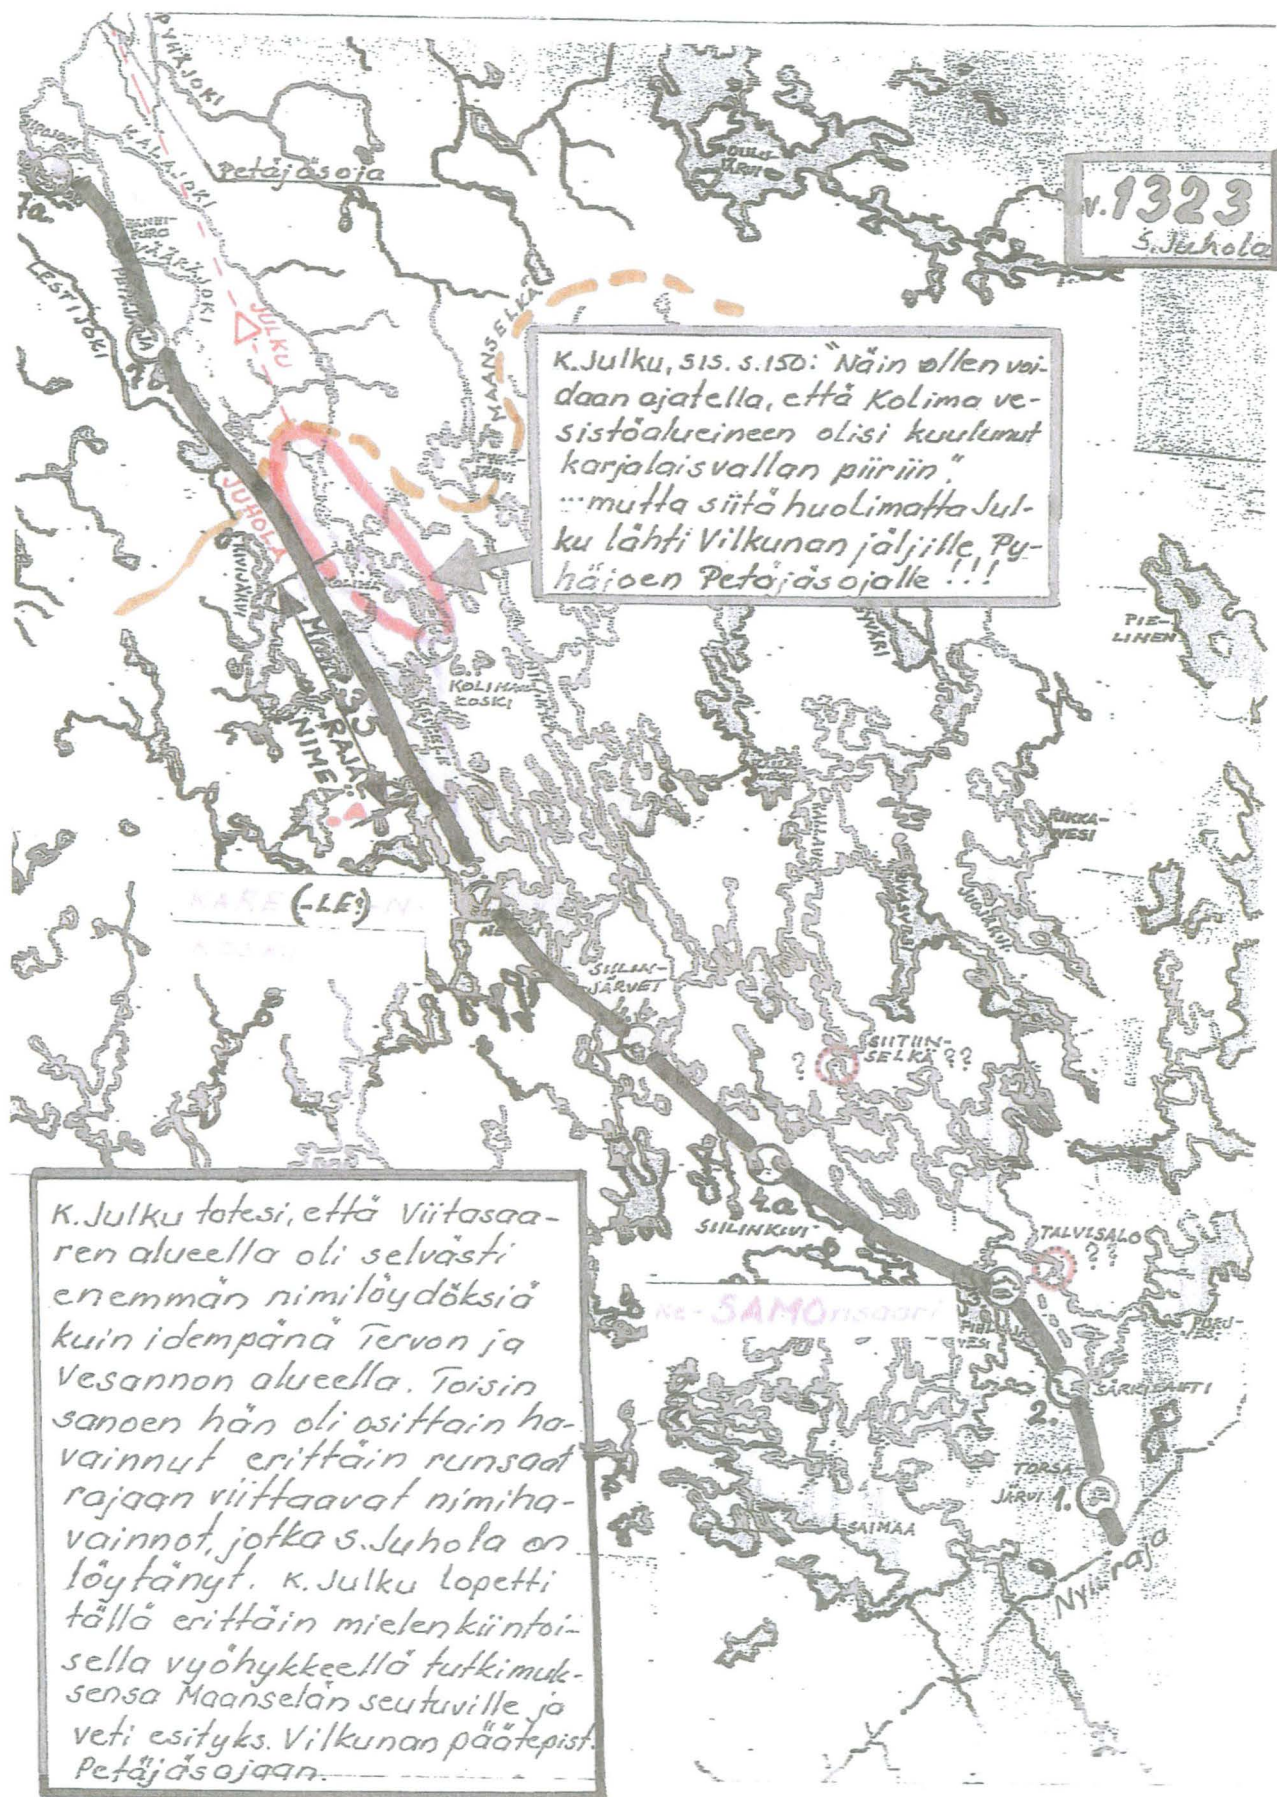 PYHÄJOKI
KALAJOKI
Petäjäsoja
OULU-
JÄRVI
v. 1323
S. Juhola
7a.
VÄÄRÄJOKI
LESTIJOKI
JULKU
MAANSELKÄ
K. Julku, sis. s. 150: "Näin ollen voi-
daan ajatella, että Kolima ve-
sistöalueineen olisi kuulunut
karjalaisvallan piiriin,"
...mutta siitä huolimatta Jul-
ku lähti Vilkunan jäljille, Py-
häjoen Petäjäsojalle !!!
JUHOLA
PIE-
LINEN
6.
KOLIMAN
KOSKI
35
RAJA-
NIMEÄ
RIKKA-
VESI
(-LE?)
SIILIN-
JÄRVET
4.b
SIITIIN-
SELKÄ ??
?
4.a
SIILINKIVI
TALVISALO
??
SAMOnsaari
PURU-
VESI
SÄRKILAHTI
2.
TORSA-
JÄRVI 1.
SAIMAA
Nyk. raja
K. Julku totesi, että Viitasaa-
ren alueella oli selvästi
enemmän nimilöydöksiä
kuin idempänä Tervon ja
Vesannon alueella. Toisin
sanoen hän oli osittain ha-
vainnut erittäin runsaat
rajaan viittaavat nimiha-
vainnot, jotka S. Juhola on
löytänyt. K. Julku lopetti
tällä erittäin mielenkiintoi-
sella vyöhykkeellä tutkimuk-
sensa Maanselän seutuville ja
veti esityks. Vilkunan päätepist.
Petäjäsojaan.